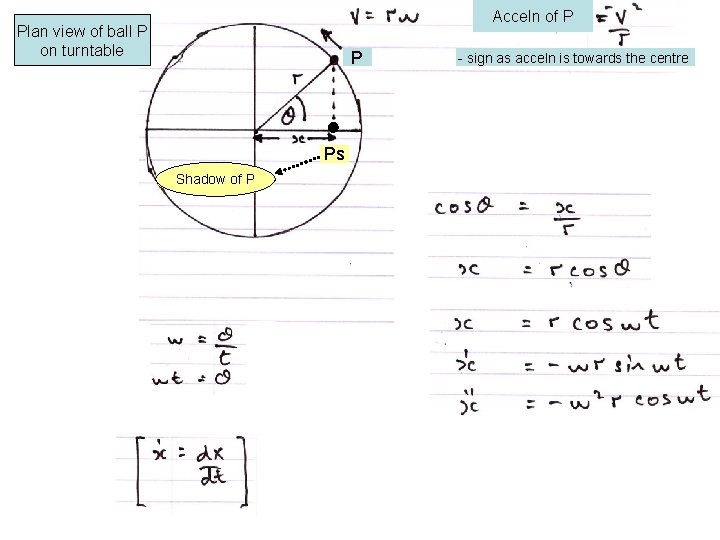 Plan view of ball P
on turntable
v = rω
Acceln of P = -v²/r
- sign as acceln is towards the centre
P
r
θ
x
Ps
Shadow of P
cosθ = x/r
x = r cosθ
x = r cos ωt
ẋ = - ωr sin ωt
ẍ = - ω² r cos ωt
ω = θ/t
ωt = θ
[ẋ = dx/dt]